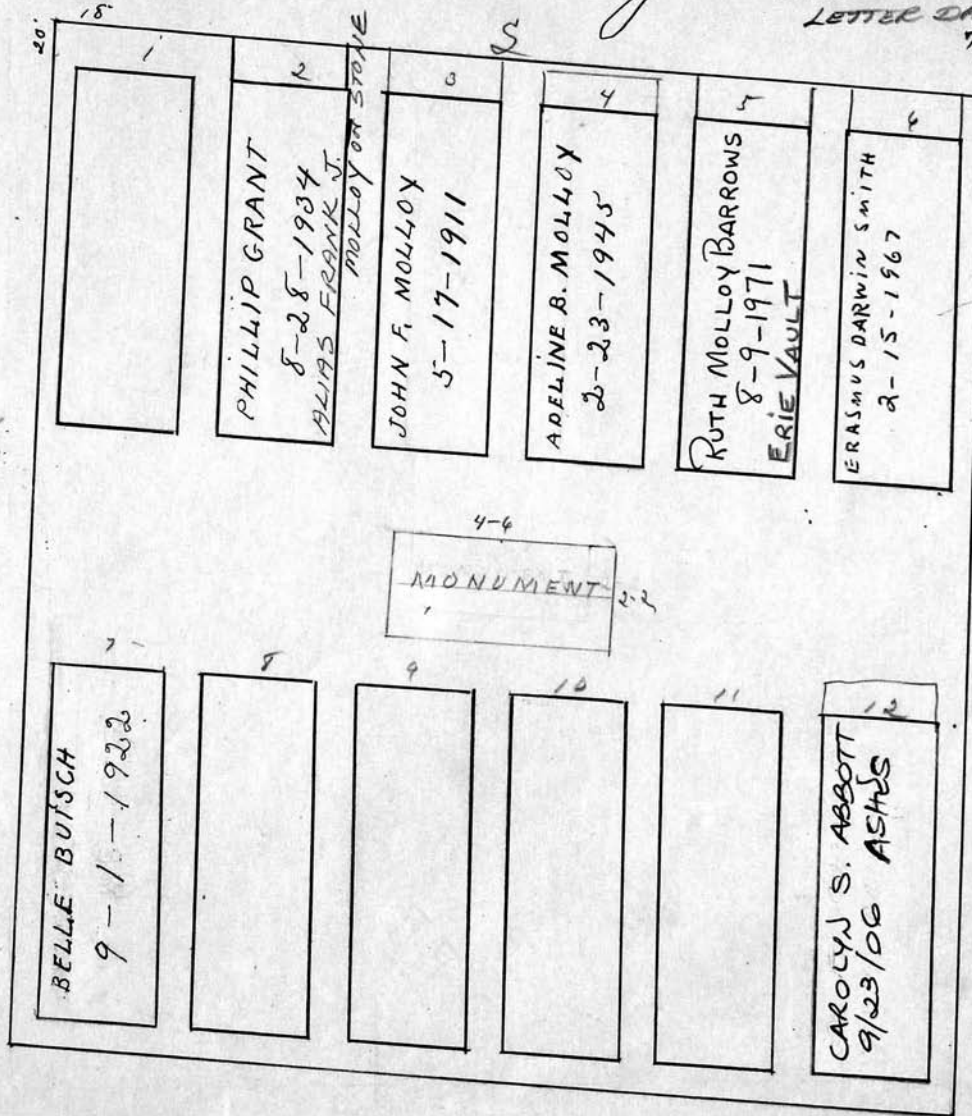 LETTER
20
18
1
2
PHILLIP GRANT
8-28-1934
ALIAS FRANK J.
MOLLOY ON STONE
3
JOHN F. MOLLOY
5-17-1911
4
ADELINE B. MOLLOY
2-23-1945
5
RUTH MOLLOY BARROWS
8-9-1971
ERIE VAULT
6
ERASMUS DARWIN SMITH
2-15-1967
4-6
MONUMENT
2-2
7
BELLE BUTSCH
9-1-1922
8
9
10
11
12
CAROLYN S. ABBOTT
9/23/06 ASHES